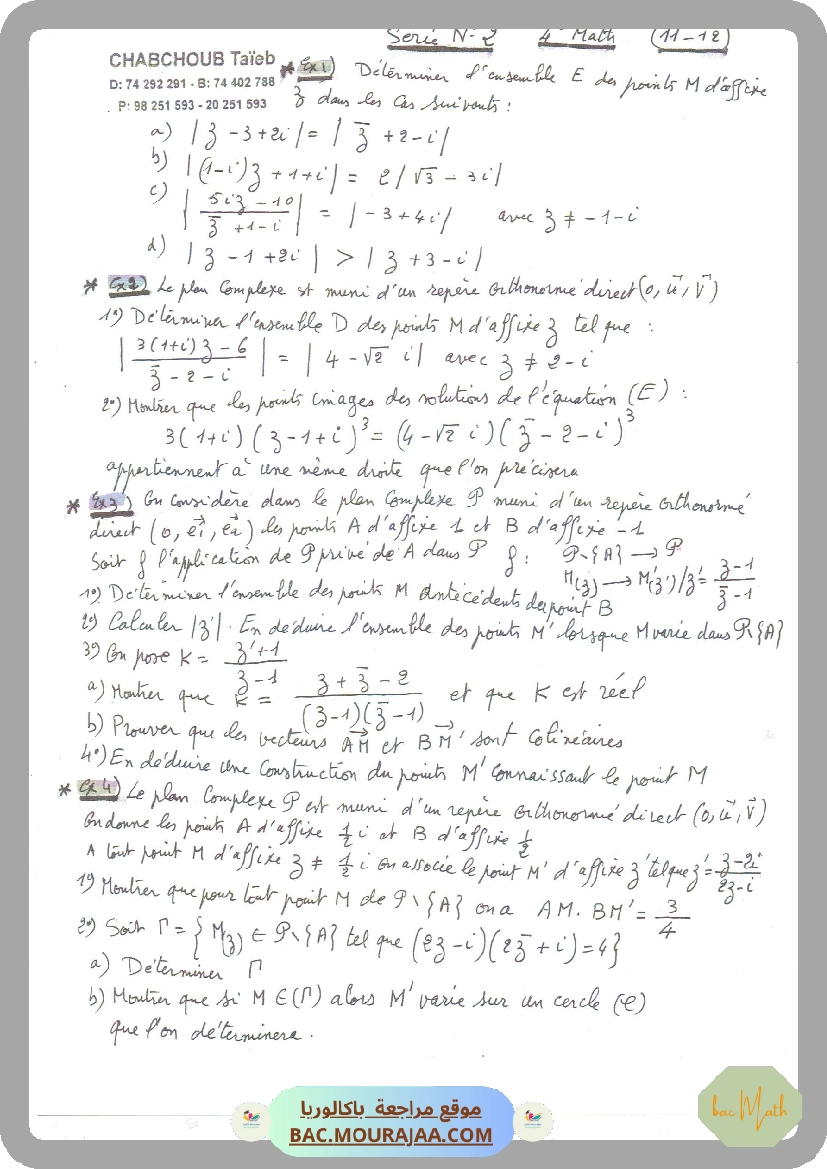 Série N-2 4° Math (11-12)
CHABCHOUB Taïeb
D: 74 292 291 - B: 74 402 788
P: 98 251 593 - 20 251 593
* Ex1) Déterminer l'ensemble E des points M d'affixe
z dans les Cas suivants :
a) |z - 3 + 2i| = |z̄ + 2 - i|
b) |(1-i)z + 1 + i| = 2|√3 - 3i|
c) |(5iz - 10)/(z̄ + 1 - i)| = |-3 + 4i| avec z ≠ -1 - i
d) |z - 1 + 2i| > |z + 3 - i|
* Ex2) Le plan Complexe est muni d'un repère orthonormé direct (o, u⃗, v⃗)
1°) Déterminer l'ensemble D des points M d'affixe z tel que :
|(3(1+i)z - 6)/(z̄ - 2 - i)| = |4 - √2 i| avec z ≠ 2 - i
2°) Montrer que les points images des solutions de l'équation (E) :
3(1+i)(z - 1 + i)³ = (4 - √2 i)(z̄ - 2 - i)³
appartiennent à une même droite que l'on précisera
* Ex3) On considère dans le plan Complexe P muni d'un repère orthonormé
direct (o, e₁⃗, e₂⃗) les points A d'affixe 1 et B d'affixe -1
Soit f l'application de P privé de A dans P f : P\{A} → P
M(z) → M'(z') / z' = (z - 1)/(z̄ - 1)
1°) Déterminer l'ensemble des points M antécédents du point B
2°) Calculer |z'|. En déduire l'ensemble des points M' lorsque M varie dans P\{A}
3°) On pose K = (z' + 1)/(z - 1)
a) Montrer que K = (z + z̄ - 2)/((z - 1)(z̄ - 1)) et que K est réel
b) Prouver que les vecteurs AM⃗ et BM'⃗ sont Colinéaires
4°) En déduire une Construction du points M' Connaissant le point M
* Ex4) Le plan Complexe P est muni d'un repère orthonormé direct (o, u⃗, v⃗)
On donne les points A d'affixe ½ i et B d'affixe ½
A tout point M d'affixe z ≠ ½ i on associe le point M' d'affixe z' tel que z' = (z - 2i)/(2z - i)
1°) Montrer que pour tout point M de P\{A} on a AM.BM' = 3/4
2°) Soit Γ = {M(z) ∈ P\{A} tel que (2z - i)(2z̄ + i) = 4}
a) Déterminer Γ
b) Montrer que si M ∈ (Γ) alors M' varie sur un cercle (C)
que l'on déterminera.
موقع مراجعة باكالوريا
BAC.MOURAJAA.COM
bac Math